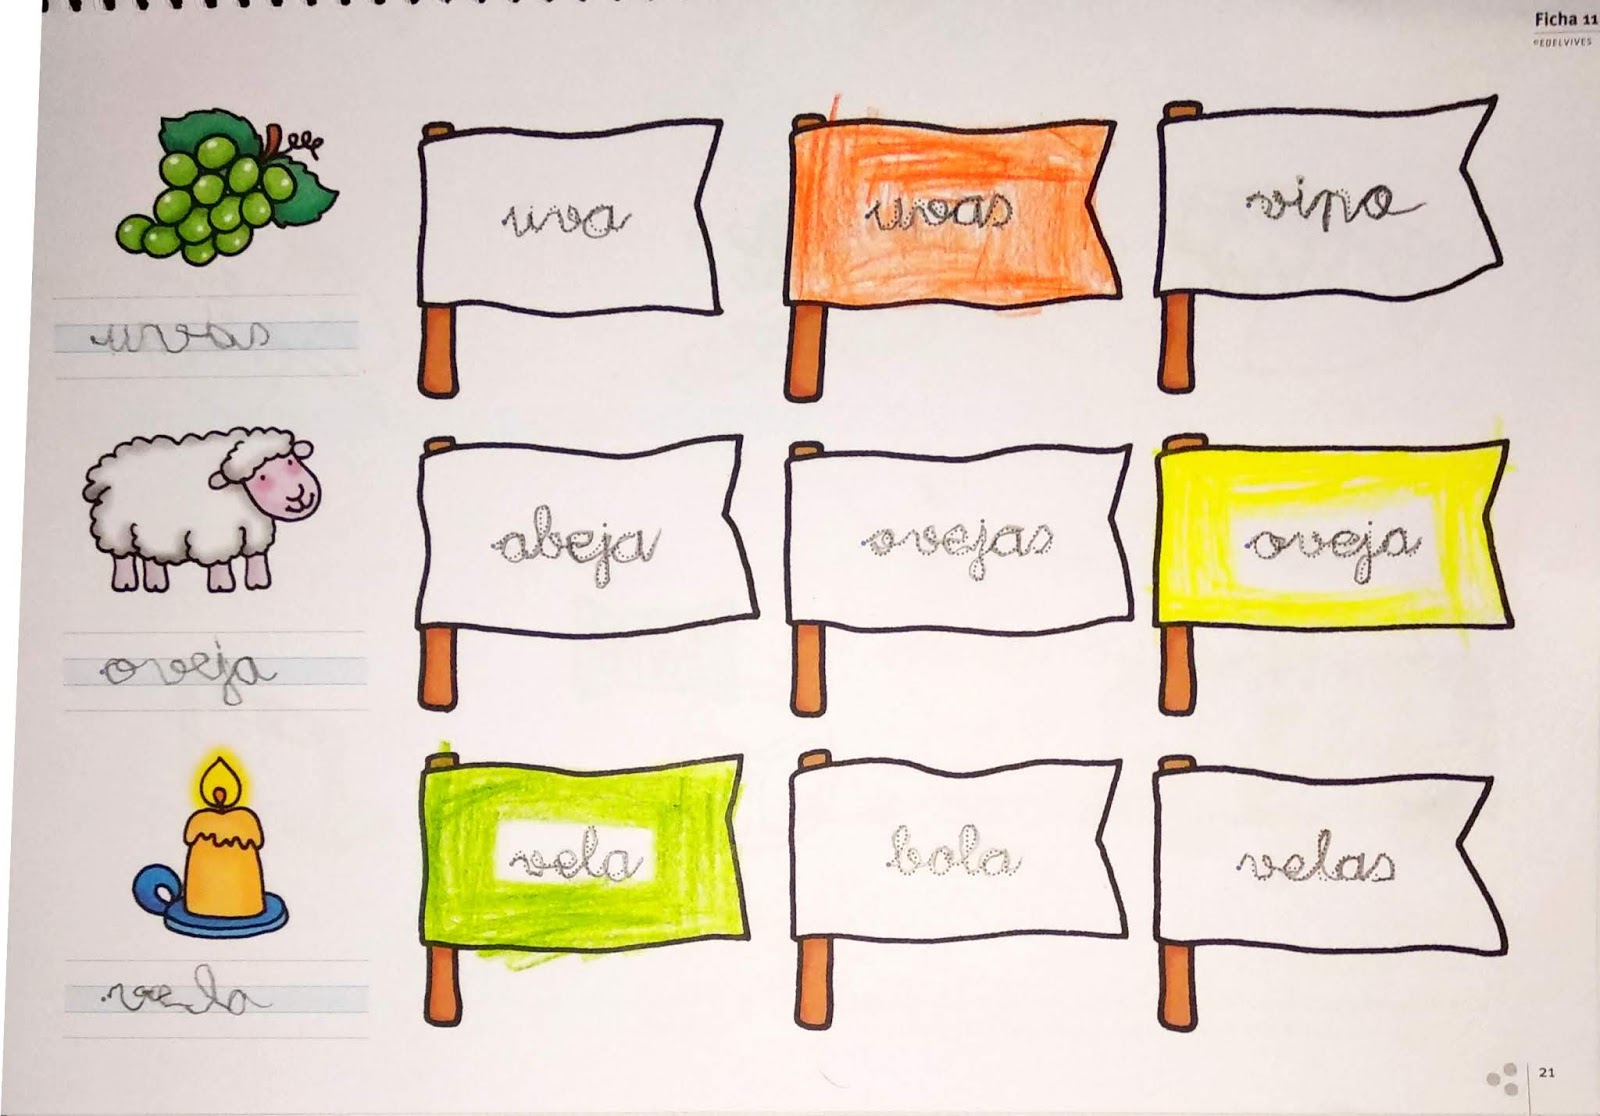 Ficha 11
©EDELVIVES
uva uvas vino
uvas
abeja ovejas oveja
oveja
vela bola velas
vela
21